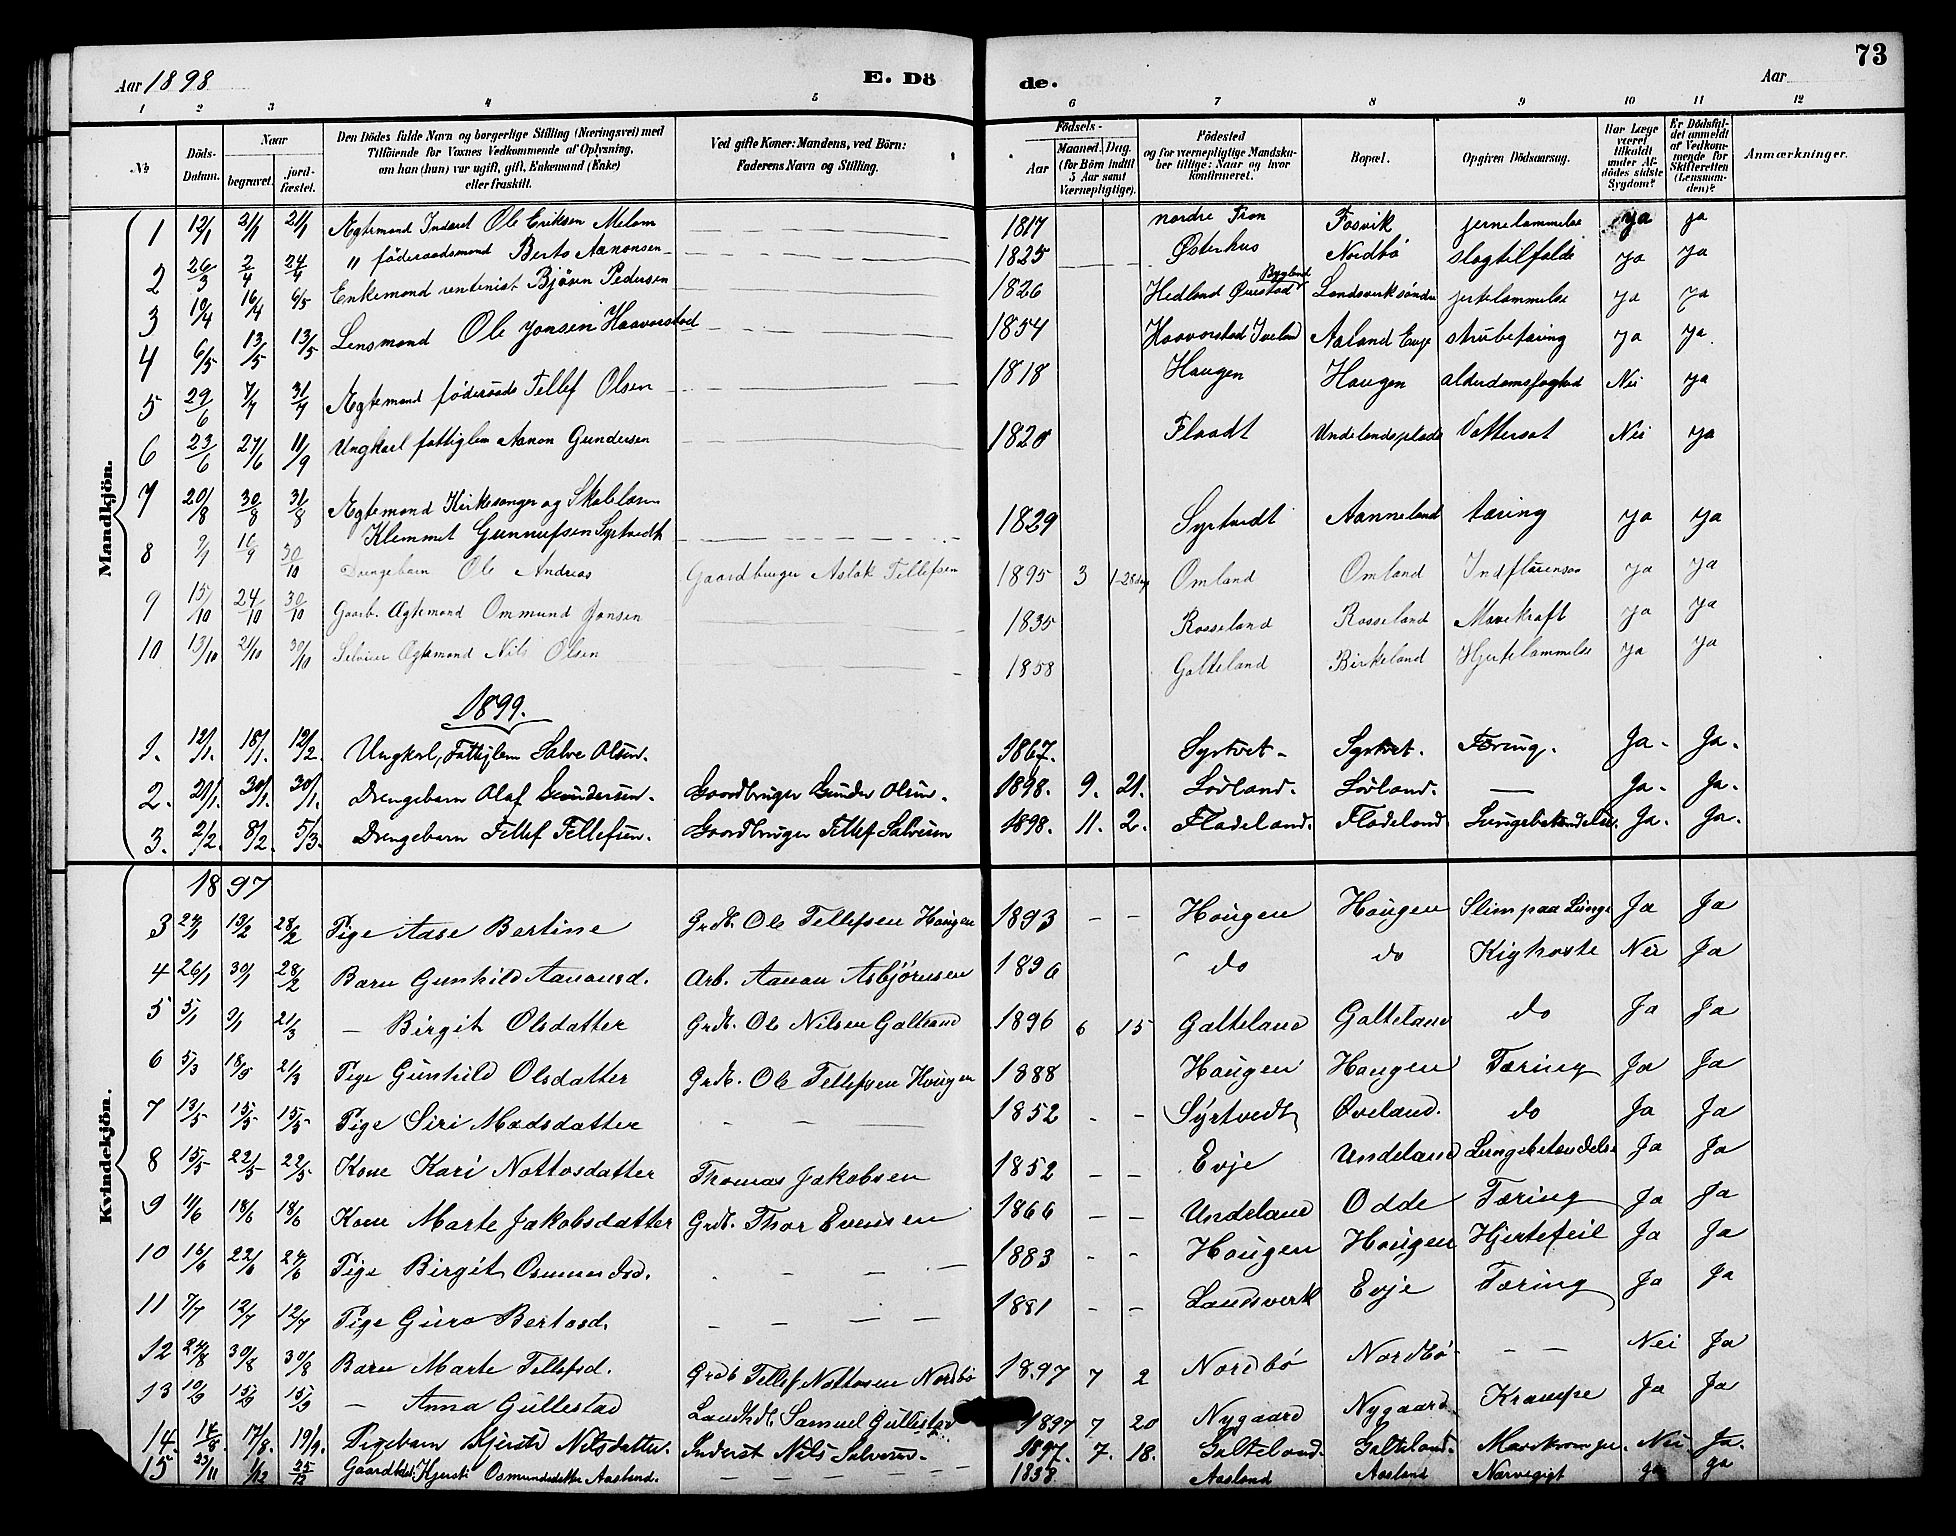 73
Aar 1898 E. Dö de. Aar
1 2 3 4 5 6 7 8 9 10 11 12
No Döds-Datum. Naar begravet. jord-fæstet. Den Dödes fulde Navn og borgerlige Stilling (Næringsvei) med Tilföiende for Voxnes Vedkommende af Oplysning, om han (hun) var ugift, gift, Enkemand (Enke) eller fraskilt. Ved gifte Koner: Mandens, ved Börn: Faderens Navn og Stilling. Födsels- Aar Maaned. Dag. (for Börn indtil 5 Aar samt Værnepligtige). Födested og for værnepligtige Mandska-ber tillige: Naar og hvor konfirmeret. Bopæl. Opgiven Dödsaarsag. Har Læge været tilkaldt under Af-dödes sidste Sygdom? Er Dödsfal-det anmeldt af Vedkom-mende for Skifteretten (Lensman-den)? Anmærkninger.
Mandkjön.
1 12/1 21/1 21/1 Ægtemand Inderst Ole Eriksen Melom 1817 nordre Fron Fosvik ja ja
2 26/3 2/4 24/4 " föderaadsmand Berto Aanonsen 1825 Østerhus Nordbö slagtilfælde ja ja
3 10/4 16/4 6/5 Enkemand rentenist Björn Pedersen 1826 Hedland Bygland ja ja
4 6/5 13/5 13/5 Lensmand Ole Jonsen Haavorstad 1854 Haavorstad Iveland Aaland Evje strubetæring ja ja
5 29/6 7/7 31/7 Ægtemand föderaads Tellef Olsen 1818 Haugen Haugen Nei ja
6 23/6 27/6 11/9 Ungkarl fattiglem Aanon Gundersen 1820 Flaadt Undelandsplads Vattersot Nei ja
7 20/8 30/8 31/8 Ægtemand Kirkesanger og Skolelærer
Klemmet Gunnufsen Syrtvedt 1829 Syrtvedt Aanneland tæring ja ja
8 9/9 16/9 30/10 Drengebarn Ole Andreas Gaardbruger Aslak Tellefsen 1895 3 Omland Omland ja ja
9 15/10 24/10 30/10 Gaarb. Ægtemand Ommund Jonsen 1835 Rosseland Rosseland Mavekræft ja ja
10 13/10 21/10 30/10 Selveier Ægtemand Nils Olsen 1858 Galteland Birkeland Hjertelammelse ja ja
1899.
1. 12/1. 18/1. 12/2. Ungkarl, Fattiglem Salve Olsen. 1867. Syrtvet. Syrtvet. Tæring. Ja. Ja.
2. 21/1. 30/1. 30/1. Drengebarn Olaf Gundersen. Gaardbruger Gunder Olsen. 1898. 9. 21. Lödland. Lödland. — Ja. Ja.
3. 2/2. 8/2. 5/3. Drengebarn Tellef Tellefsen. Gaardbruger Tellef Salvesen 1898. 11. 2. Fladeland. Fladeland. Lungebetændelse. Ja. Ja.
Kvindekjön.
1897
3 24/1 13/2 28/2 Pige Aase Bertine Grdb. Ole Tellefsen Hougen 1893 – – Hougen Hougen Slim paa Lunge Ja Ja
4 26/1 30/1 28/2 Barn Gunhild Aanonsd. Arb. Aanon Asbjörnsen 1896 do do Kighoste Nei Ja
5 5/1 9/1 21/3 – Birgit Olsdatter Grdb. Ole Nilsen Galteland 1896 6 15 Galteland Galteland do Ja Ja
6 5/3 21/3 Pige Gunhild Olsdatter Grdb. Ole Tellefsen Hougen 1888 Hougen Hougen Tæring Ja Ja
7 13/5 15/5 15/5 Pige Siri Madsdatter – – – 1852 – – Syrtvedt Øveland. do Ja Ja
8 15/5 22/5 22/5 Kone Kari Nottosdatter Thomas Jakobsen 1852 – – Evje Undeland Lungebetændelse Ja Ja
9 11/6 18/6 18/6 Kone Marte Jakobsdatter Grdb. Thor Evensen 1866 – – Undeland Odde Tæring Ja Ja
10 16/6 22/6 27/6 Pige Birgit Osmundsd. – – – 1883 – – Hougen Hougen Hjertefeil Ja Ja
11 7/7 12/7 12/7 Pige Guro Bertosd. – – – – 1881 – – Landsverk Evje Tæring Ja Ja
12 24/8 30/8 30/8 Barn Marte Tellefsd. Grdb Tellef Nottosen Nordbö 1897 7 2 Nordbö Nordbö – – Nei Ja
13 10/9 15/9 15/9 – Anna Gullestad Landhdl. Samuel Gullestad 1897 7 20 Nygaard Nygaard Krampe Ja Ja
14. 17/8. 19/9. Pigebarn Kjersti Nilsdatter. Inderst Nils Salvesen. 1897. 7. 18. Galteland. Galteland. Nei. Ja.
15 23/11 1/12 25/12 Kjersti Osmundsdatter Aasland. 1838 Aasland Aasland ja ja